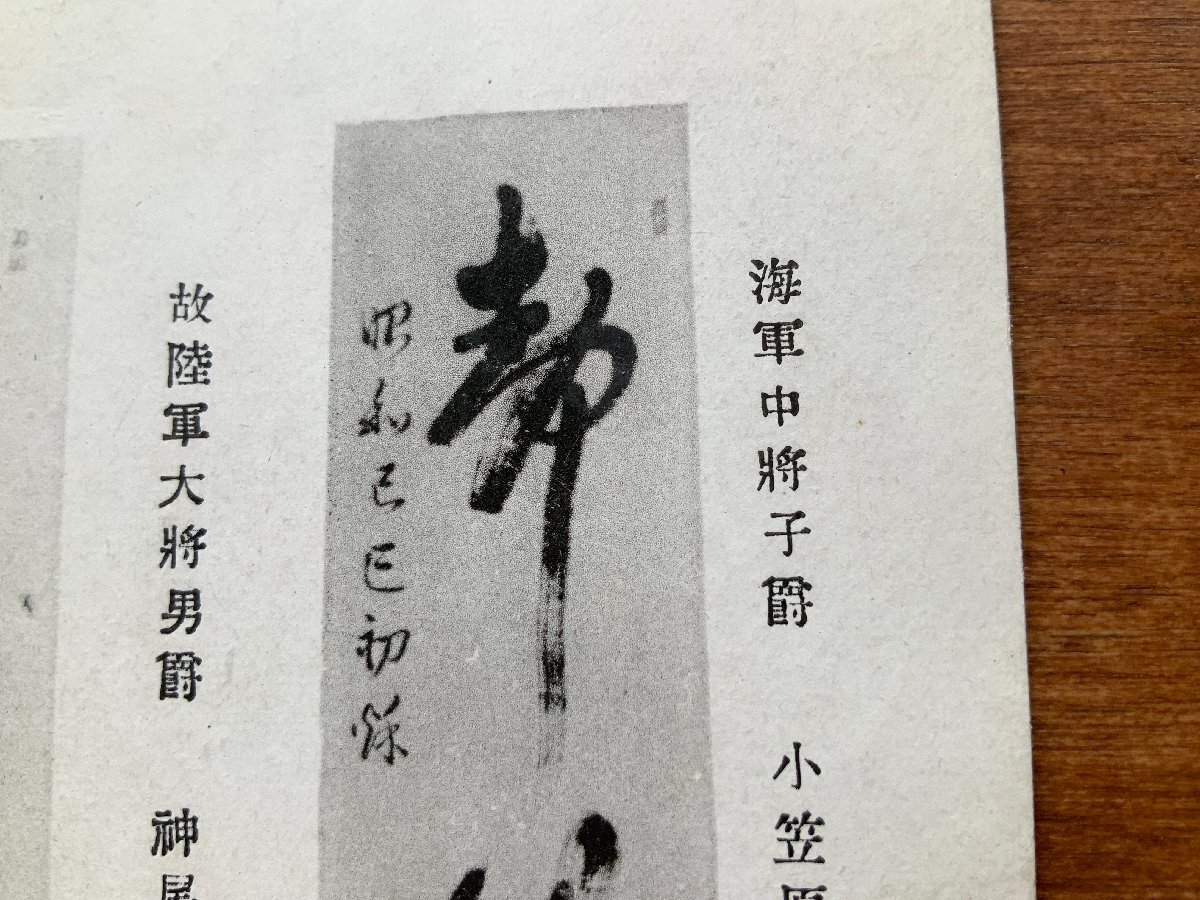 海軍中將子爵 小笠原
静
昭和己巳初秌
故陸軍大將男爵 神尾